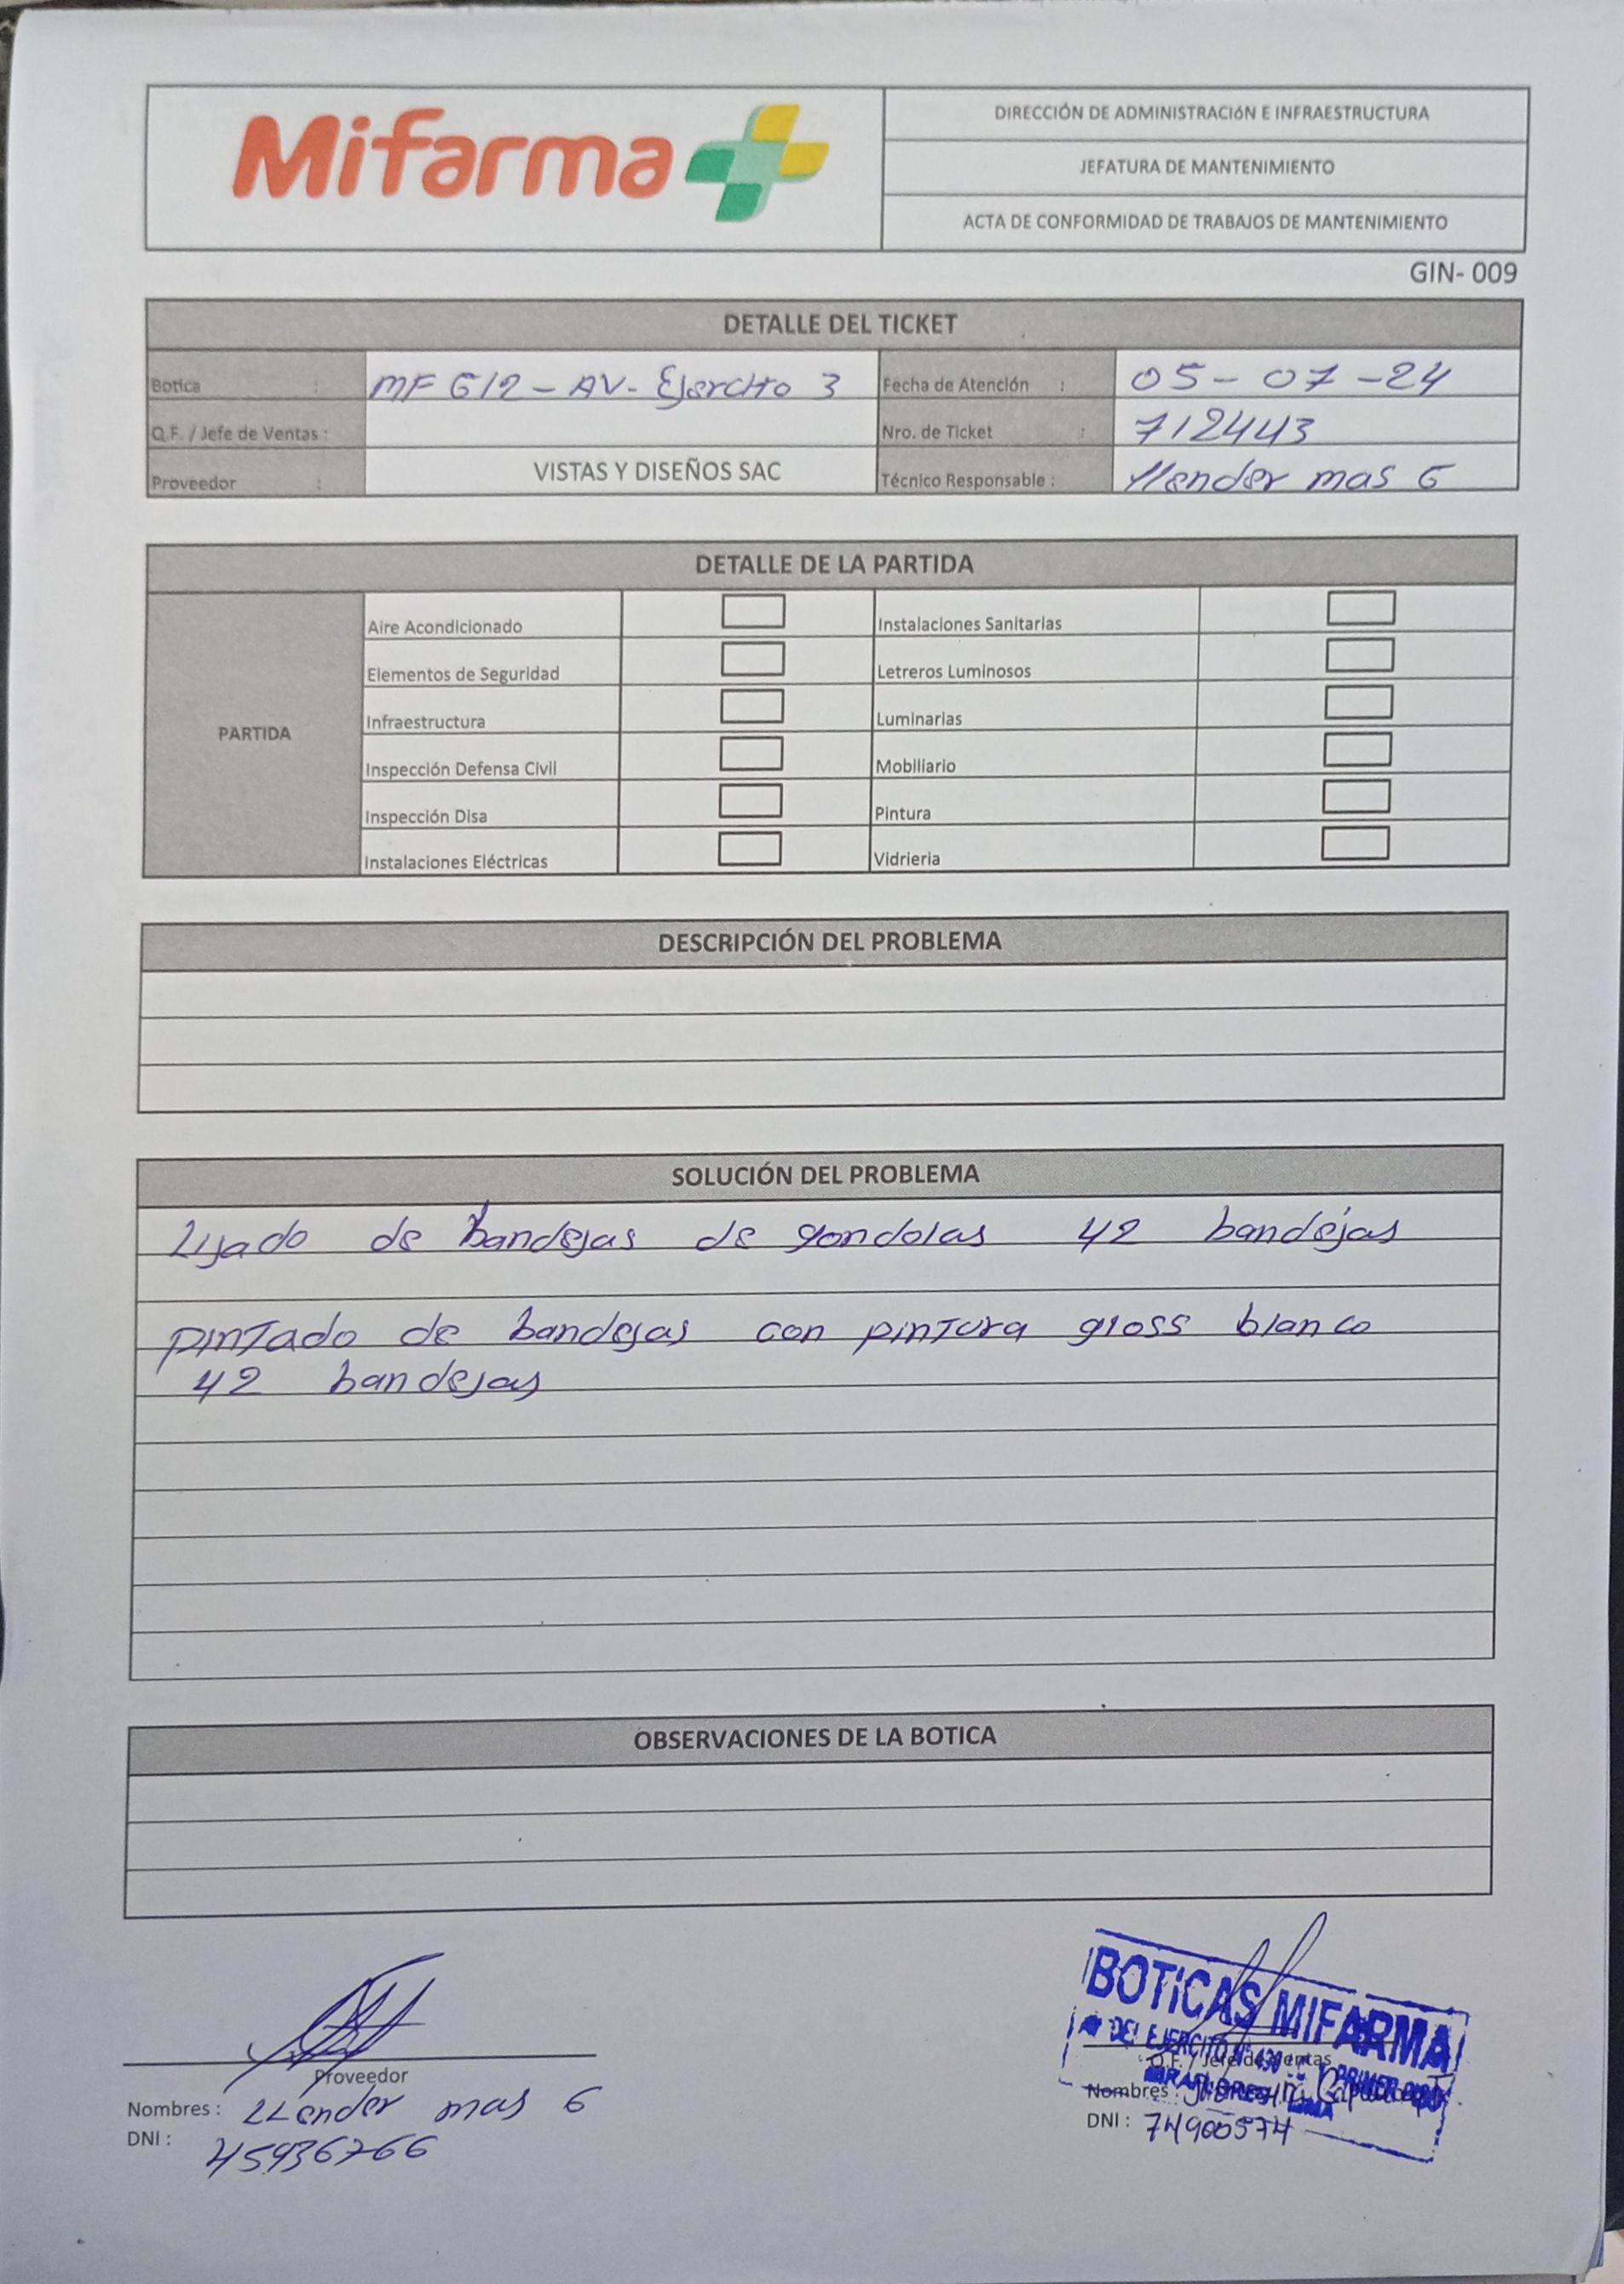 Mifarma
DIRECCIÓN DE ADMINISTRACIÓN E INFRAESTRUCTURA
JEFATURA DE MANTENIMIENTO
ACTA DE CONFORMIDAD DE TRABAJOS DE MANTENIMIENTO
GIN- 009
DETALLE DEL TICKET
Botica : MF 612 - AV- Ejercito 3 Fecha de Atención : 05-07-24
Q.F. / Jefe de Ventas : Nro. de Ticket : 712443
Proveedor : VISTAS Y DISEÑOS SAC Técnico Responsable : Llender mas G
DETALLE DE LA PARTIDA
PARTIDA
Aire Acondicionado Instalaciones Sanitarias
Elementos de Seguridad Letreros Luminosos
Infraestructura Luminarias
Inspección Defensa Civil Mobiliario
Inspección Disa Pintura
Instalaciones Eléctricas Vidrieria
DESCRIPCIÓN DEL PROBLEMA
SOLUCIÓN DEL PROBLEMA
Lijado de bandejas de gondolas 42 bandejas
pintado de bandejas con pintura gloss blanco
42 bandejas
OBSERVACIONES DE LA BOTICA
Proveedor
Nombres : LLender mas G
DNI : 45936766
BOTICAS MIFARMA
DEL EJERCITO N° 430
Q.F. / Jefe de Ventas
Nombres :
DNI : 74900574